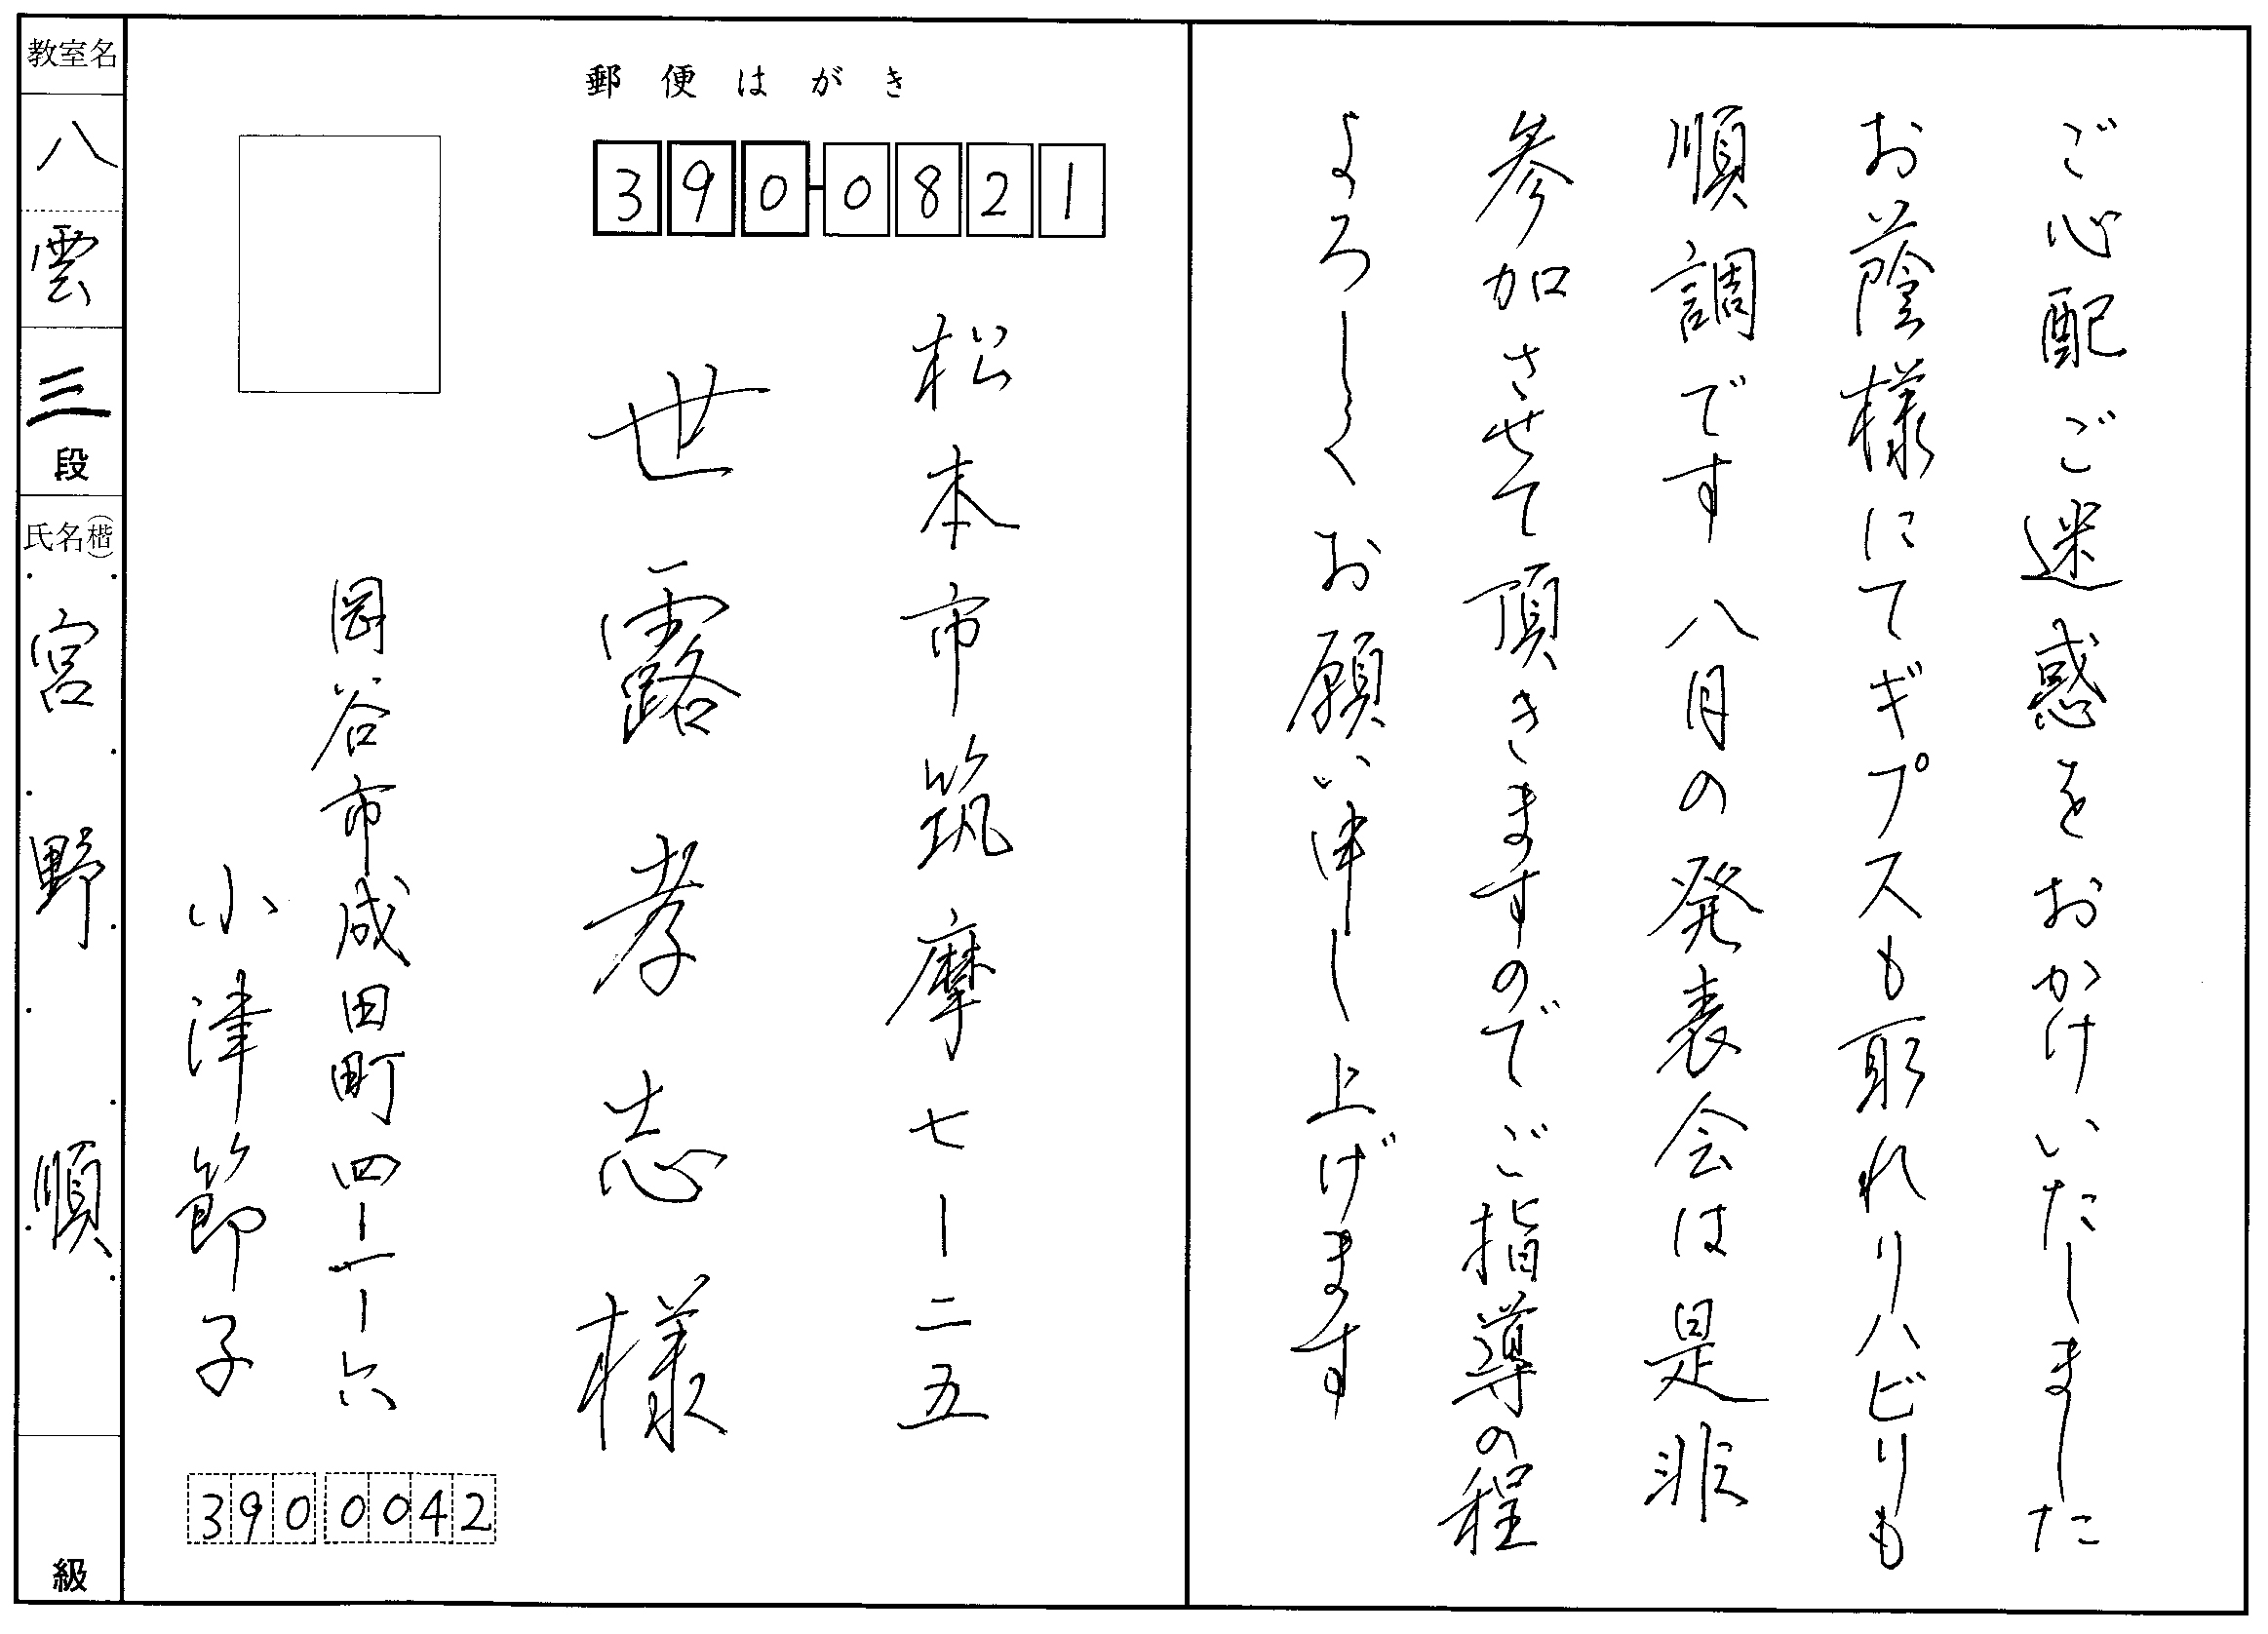 ご心配ご迷惑をおかけいたしました
お蔭様にてギプスも取れリハビリも
順調です 八月の発表会は是非
参加させて頂きますのでご指導の程
よろしくお願い申し上げます
郵便はがき
390-0821
松本市筑摩七ー二五
世露孝志様
岡谷市成田町四ー一ー六
小津節子
390 0042
教室名
八雲
三段
氏名(楷)
宮野順
級